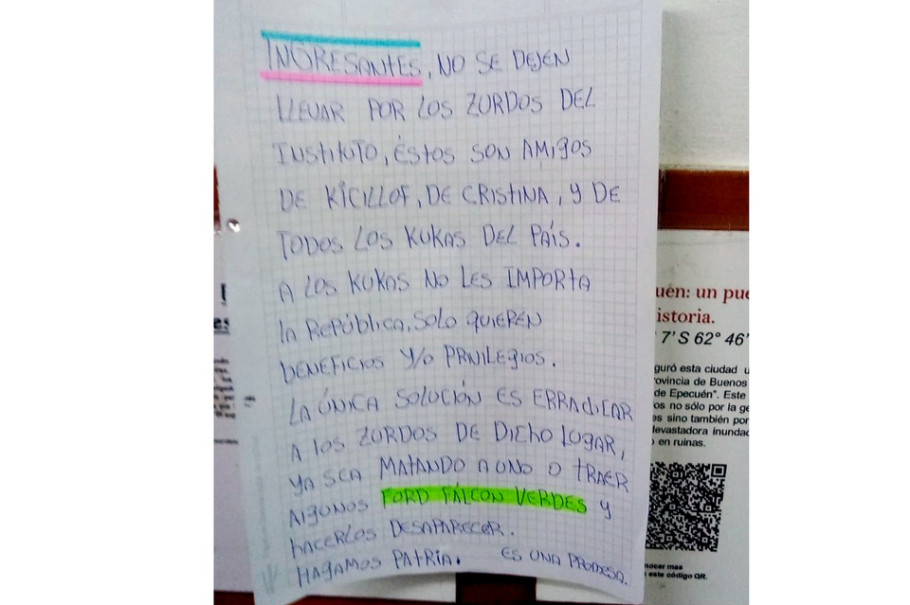 INGRESANTES, NO SE DEJEN
LLEVAR POR LOS ZURDOS DEL
INSTITUTO, ÉSTOS SON AMIGOS
DE KICILLOF, DE CRISTINA, Y DE
TODOS LOS KUKAS DEL PAÍS.
A LOS KUKAS NO LES IMPORTA
la REPÚBLICA, SOLO QUIEREN
BENEFICIOS Y/O PRIVILEGIOS.
LA ÚNICA SOLUCIÓN ES ERRADICAR
A LOS ZURDOS DE DICHO LUGAR,
YA SEA MATANDO A UNO O TRAER
ALGUNOS FORD FALCON VERDES Y
HACERLOS DESAPARECER.
HAGAMOS PATRIA. ES UNA PROMESA.
uén: un pue
istoria.
7' S 62° 46'
guró esta ciudad u
rovincia de Buenos
de Epecuén". Este
os no sólo por la ge
es sino también por
devastadora inundac
o en ruinas.
nocer mas
este código QR.